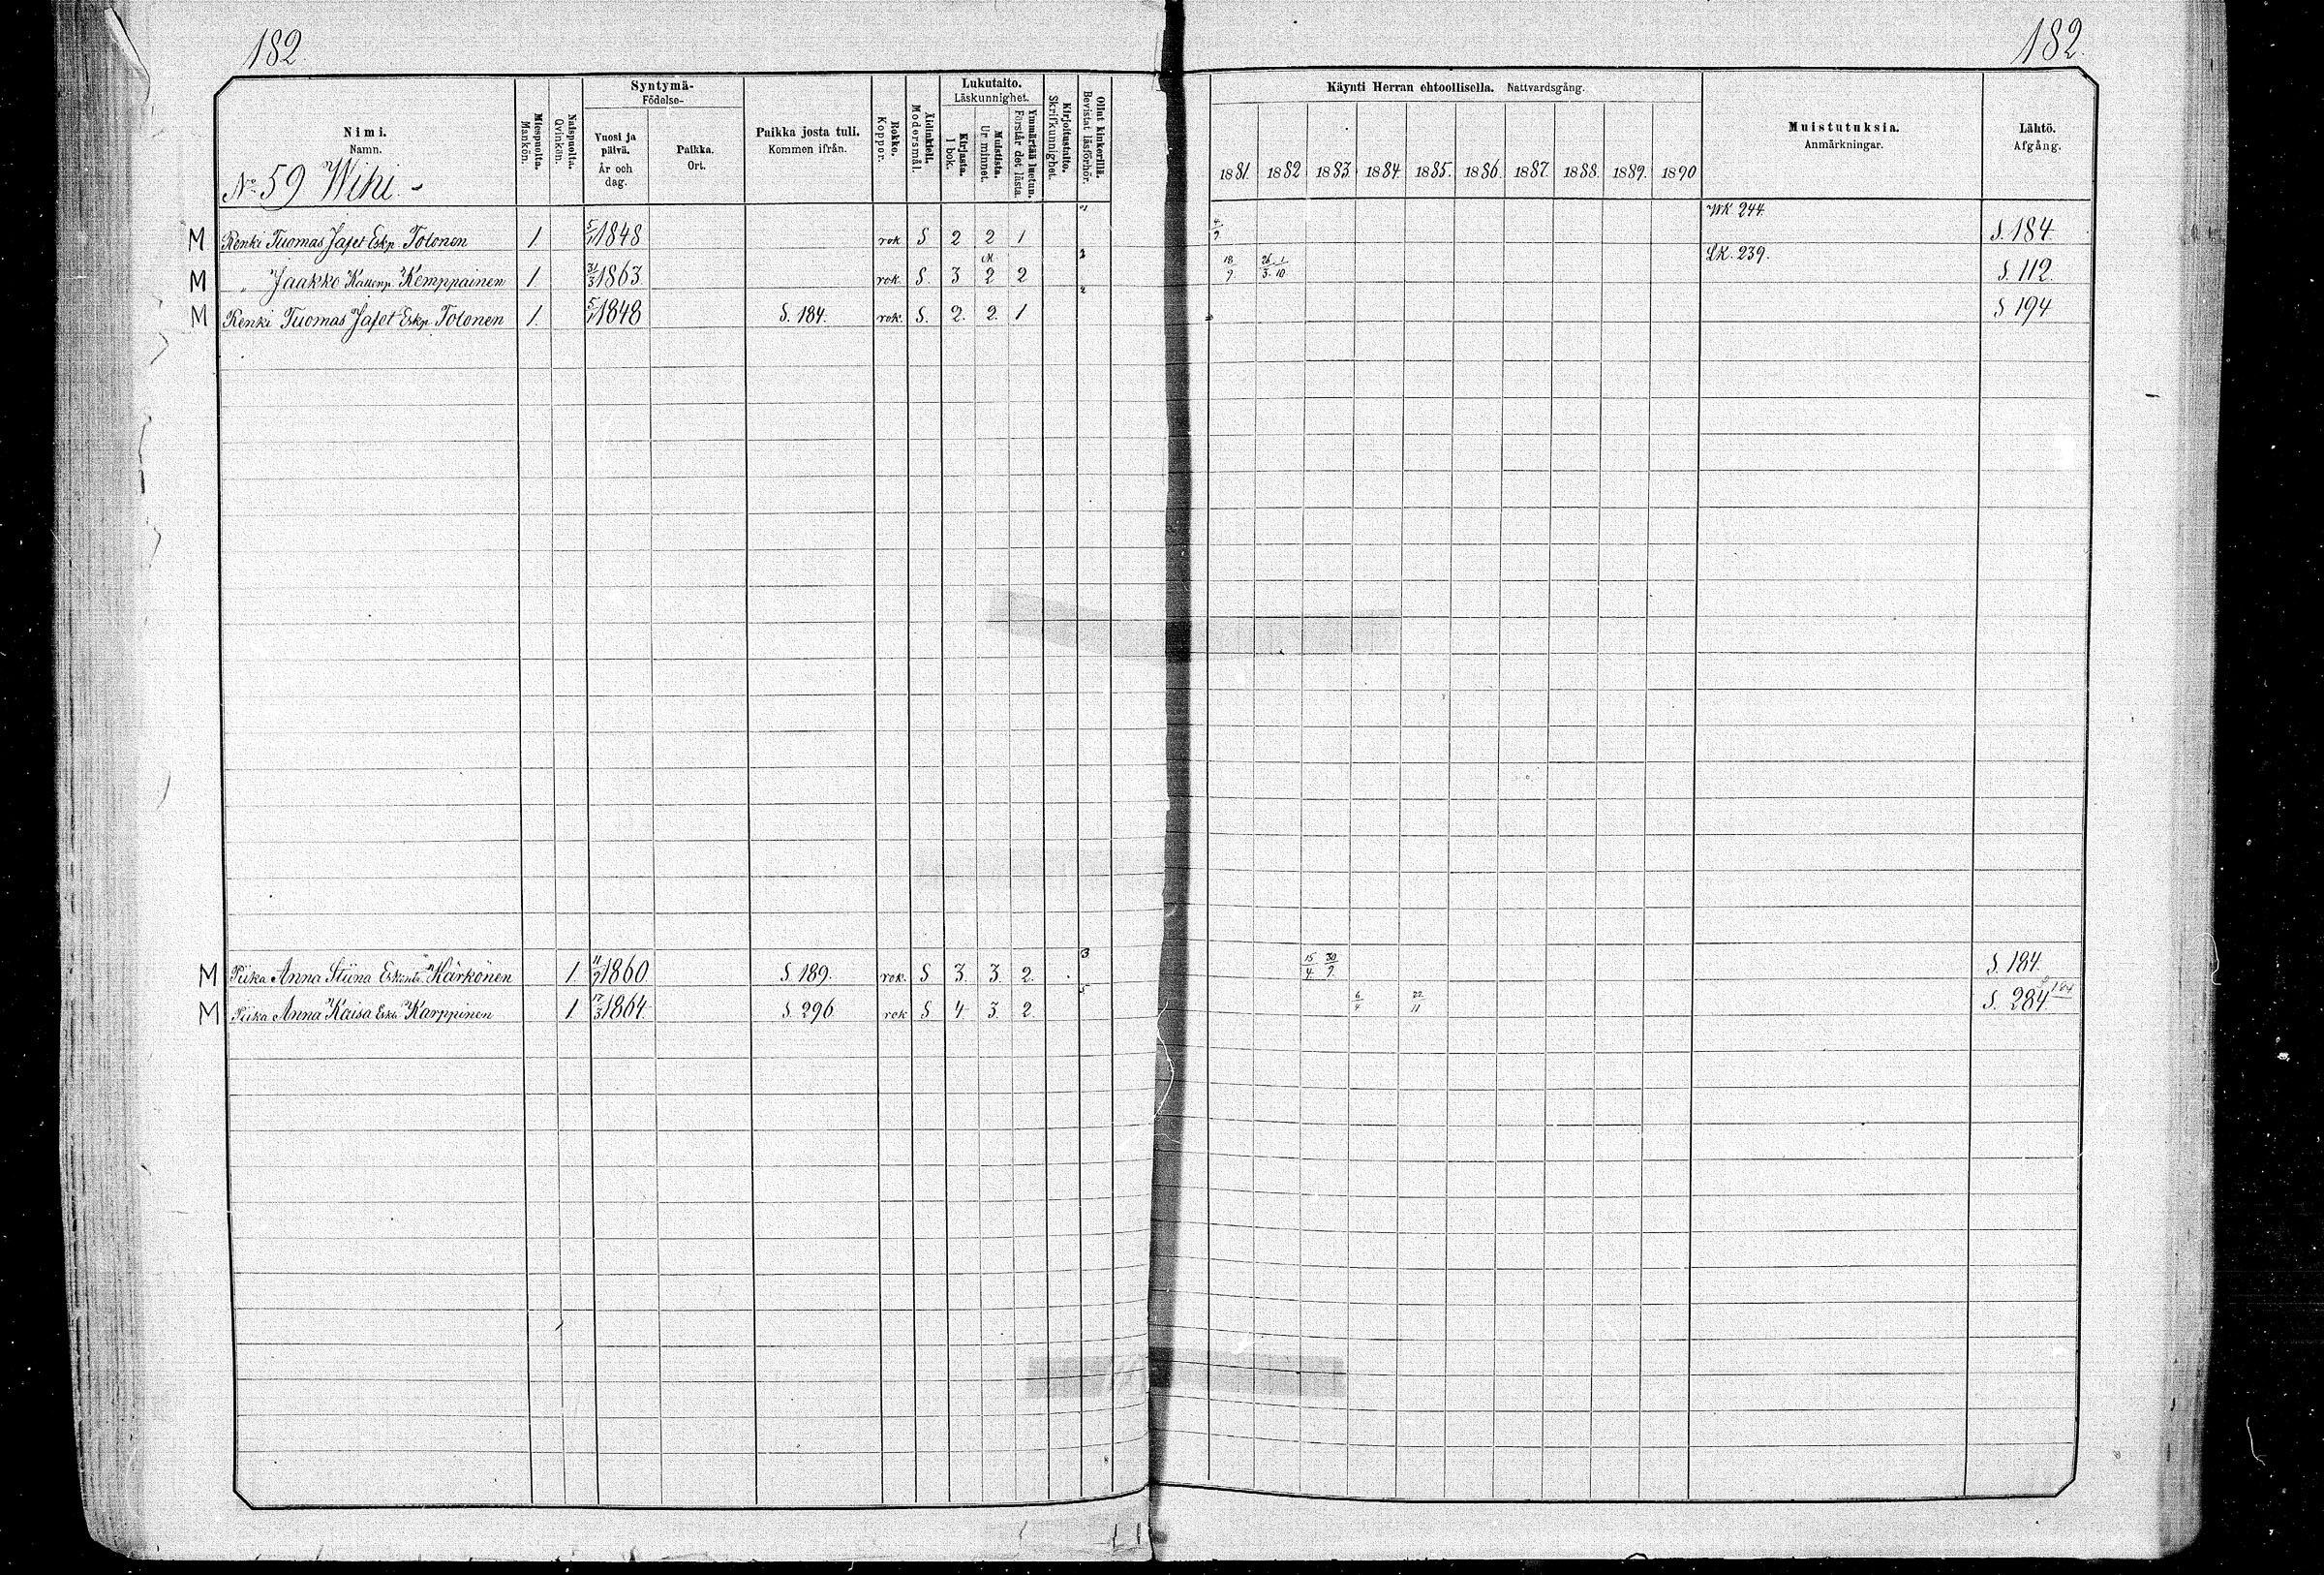 182.
182.
Nimi.
Namn.
Miespuolta.
Mankön.
Naispuolta.
Qvinkön.
Syntymä-
Födelse-
Vuosi ja päivä.
År och dag.
Paikka.
Ort.
Paikka josta tuli.
Kommen ifrån.
Rokko.
Koppor.
Äidinkieli.
Modersmål.
Lukutaito.
Läskunnighet.
Kirjasta.
I bok.
Muistista.
Ur minnet.
Ymmärtää luetun.
Förstår det lästa.
Kirjoitustaito.
Skrifkunnighet.
Ollut kinkerillä.
Bevistat läsförhör.
Käynti Herran ehtoollisella. Nattvardsgång.
1881. 1882 1883 1884 1885. 1886. 1887. 1888. 1889. 1890
Muistutuksia.
Anmärkningar.
Lähtö.
Afgång.
No 59 Wihi.
M Renki Tuomas Jafet Eskp. Tolonen 1. 5/1 1848 rok. S 2 2 1 4/9 WK 244. S. 184.
M " Jaakko Kallenp. Kemppainen 1 31/3 1863 rok. S. 3 2 2 18/9 26/3. 1/10 LK. 239. S. 112.
M Renki Tuomas Jafet Eskp. Tolonen 1. 5/1 1848 S. 184. rok. S. 2. 2. 1 S 194
M Piika Anna Stiina Kärkönen 1. 11/9 1860. S. 189. rok. S 3. 3. 2. 3 15/4. 30/9. S. 184.
M Piika Anna Kaisa Karppinen 1. 17/3 1864 S. 296 rok S 4 3. 2. 5 6/4 22/11 S. 284.